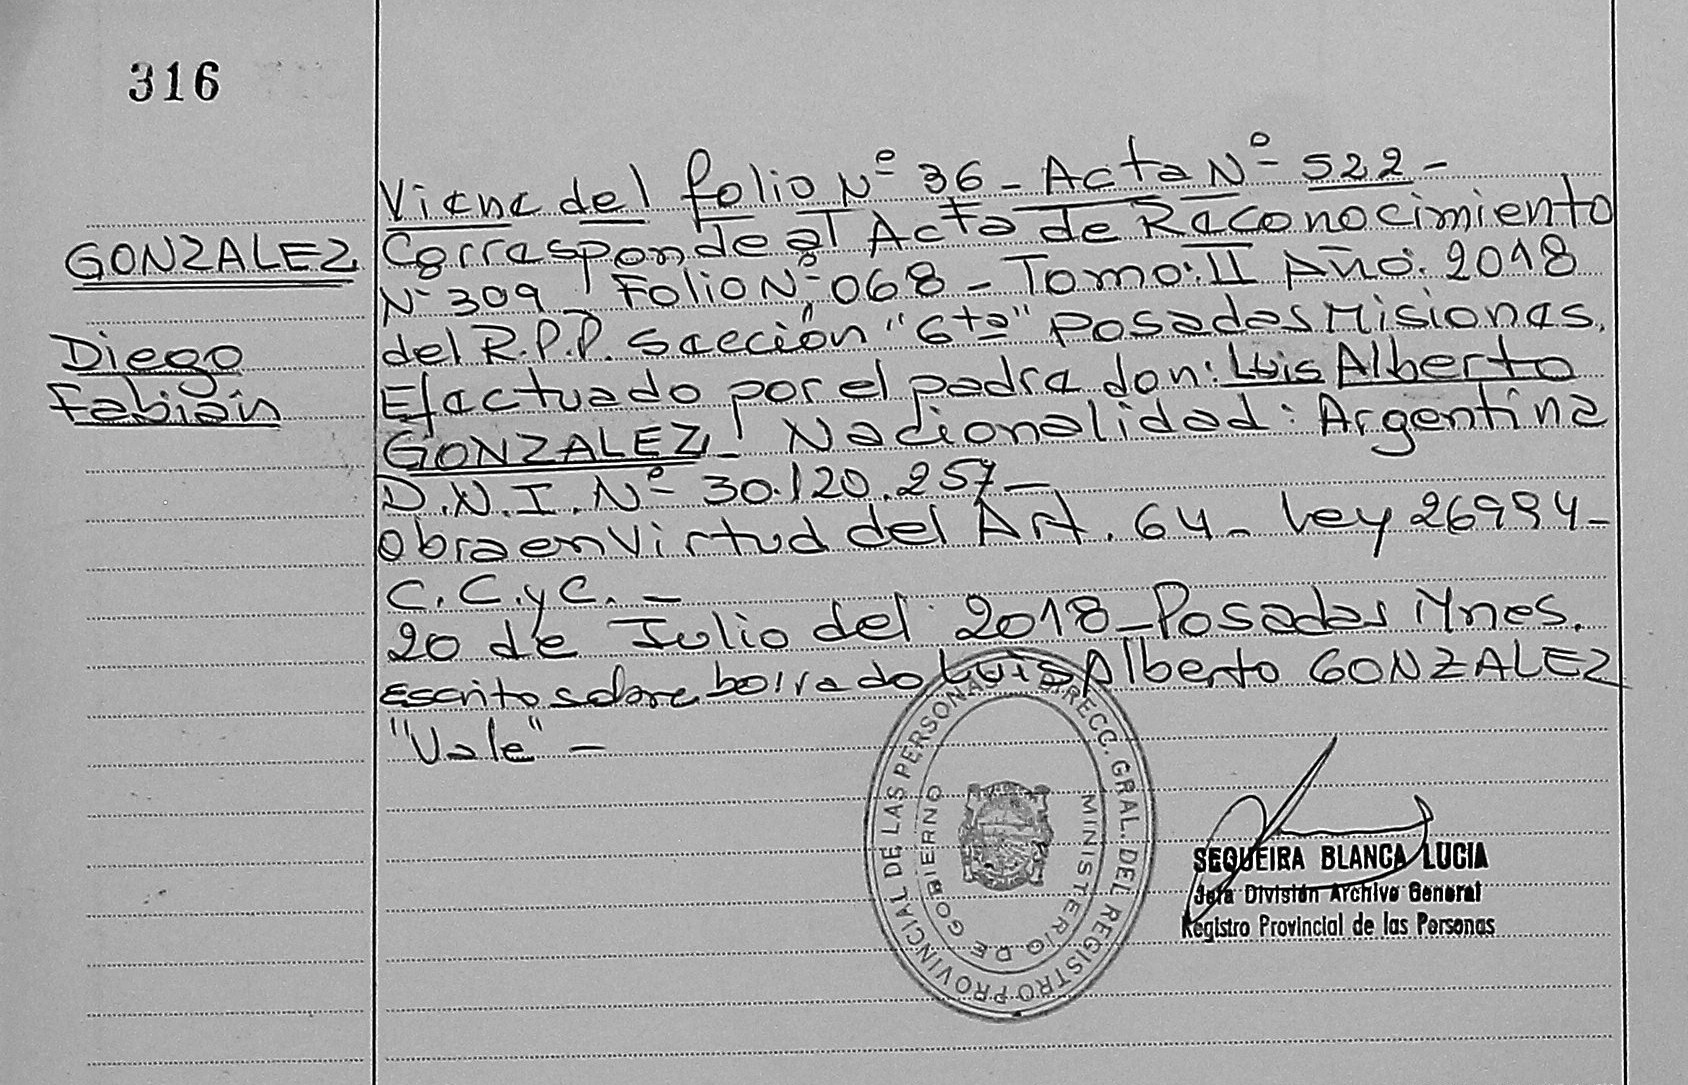 316
GONZALEZ
Diego
Fabián
Viene del folio Nº 36 - Acta Nº 522 -
Corresponde al Acta de Reconocimiento
Nº 309 Folio Nº 068 - Tomo: II Año: 2018
del R.P.P. Sección "6ta" Posadas Misiones.
Efectuado por el padre don: Luis Alberto
GONZALEZ - Nacionalidad: Argentina
D.N.I. Nº 30.120.257 -
Obra en Virtud del Art. 64 - Ley 26994 -
C.C.yC. -
20 de Julio del 2018 - Posadas Mnes.
Escrito sobre borrado Luis Alberto GONZALEZ
"Vale" -
DIRECC. GRAL. DEL REGISTRO PROVINCIAL DE LAS PERSONAS
MINISTERIO DE GOBIERNO
SEQUEIRA BLANCA LUCIA
Jefa División Archivo General
Registro Provincial de las Personas